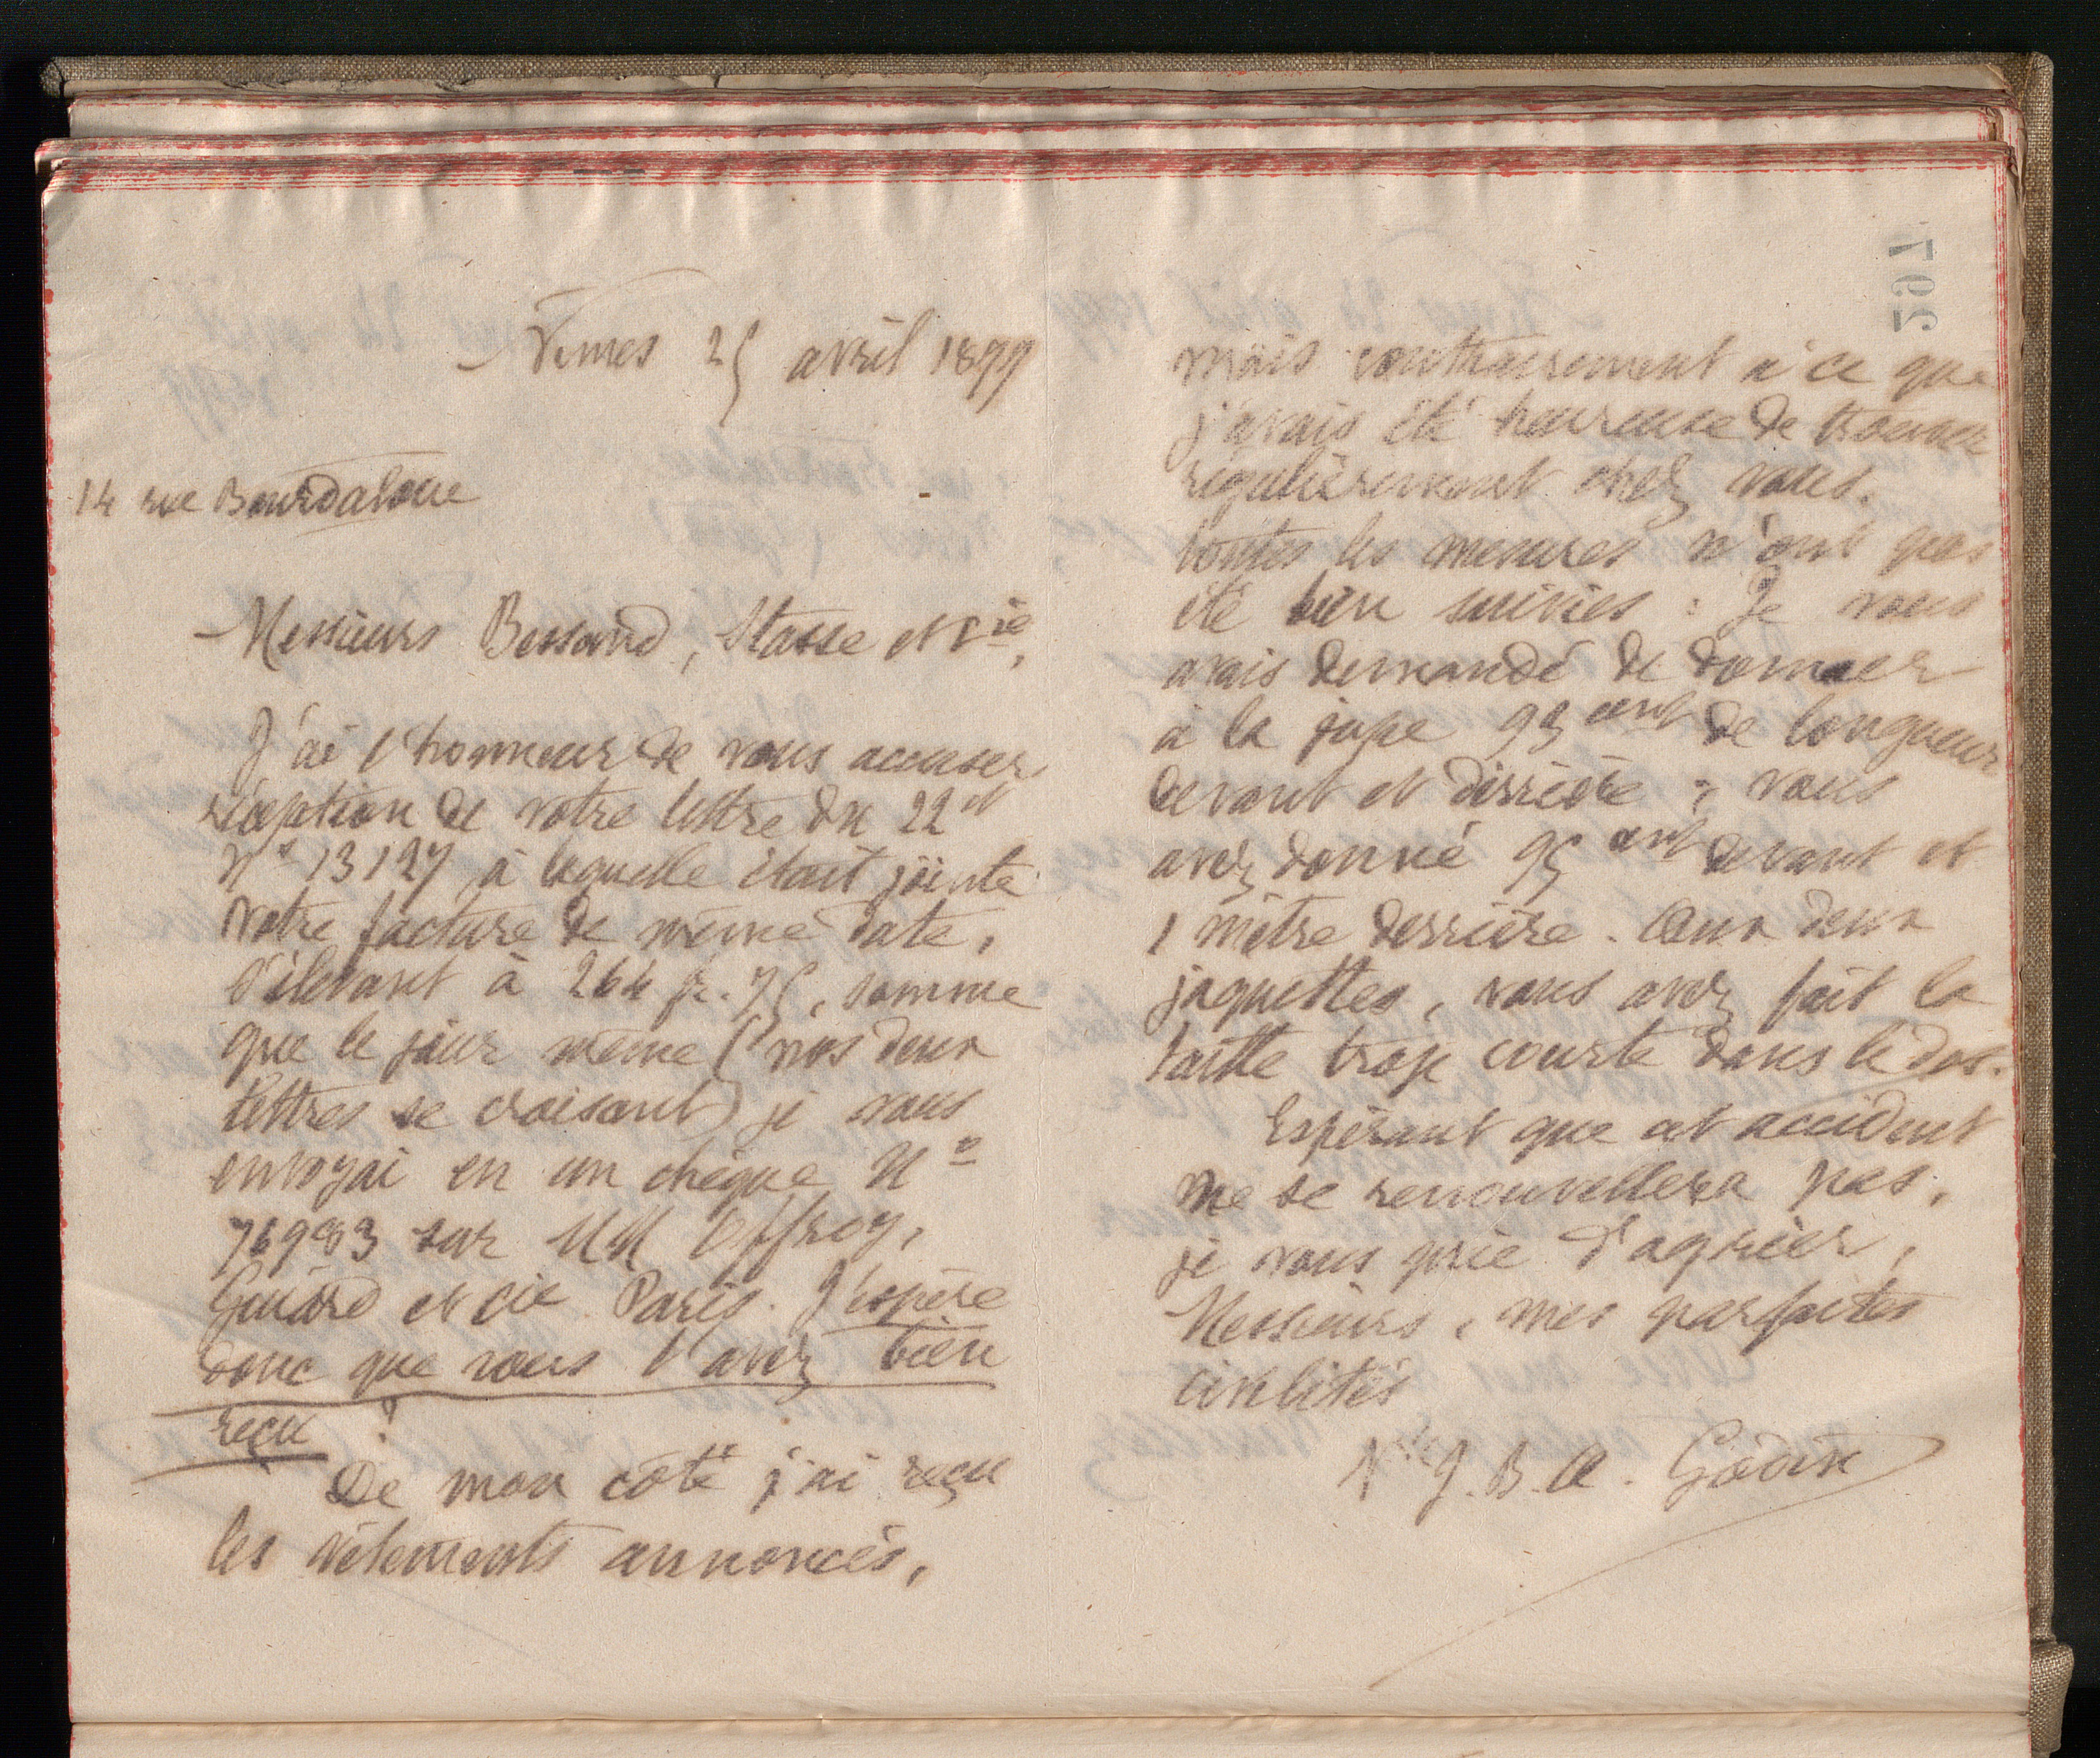 Nimes 25 avril 1899
14 rue Bourdaloue
Messieurs Bessand, Stasse et Cie,
J'ai l'honneur de vous accuser
réception de votre lettre du 22 et
No 13127 à laquelle était jointe
votre facture de même date,
s'élevant à 264 fr. 75, somme
que le jour même (nos deux
lettres se croisant) je vous
envoyai en un chèque No
76983 sur MM Offroy,
Guiard et cie Paris. J'espère
donc que vous l'avez bien
reçu ?
De mon côté j'ai reçu
les vêtements annoncés,
mais contrairement à ce que
j'avais été heureuse de trouver
régulièrement chez vous.
toutes les mesures n'ont pas
été bien suivies : Je vous
avais demandé de donner
à la jupe 93 cent de longueur
devant et derrière ; vous
avez donné 95 cent devant et
1 mètre derrière. Aux deux
jaquettes, vous avez fait la
taille trop courte dans le dos.
Espérant que cet accident
ne se renouvellera pas,
je vous prie d'agréer,
Messieurs, mes parfaites
civilités
Vve J. B. A. Godin
597